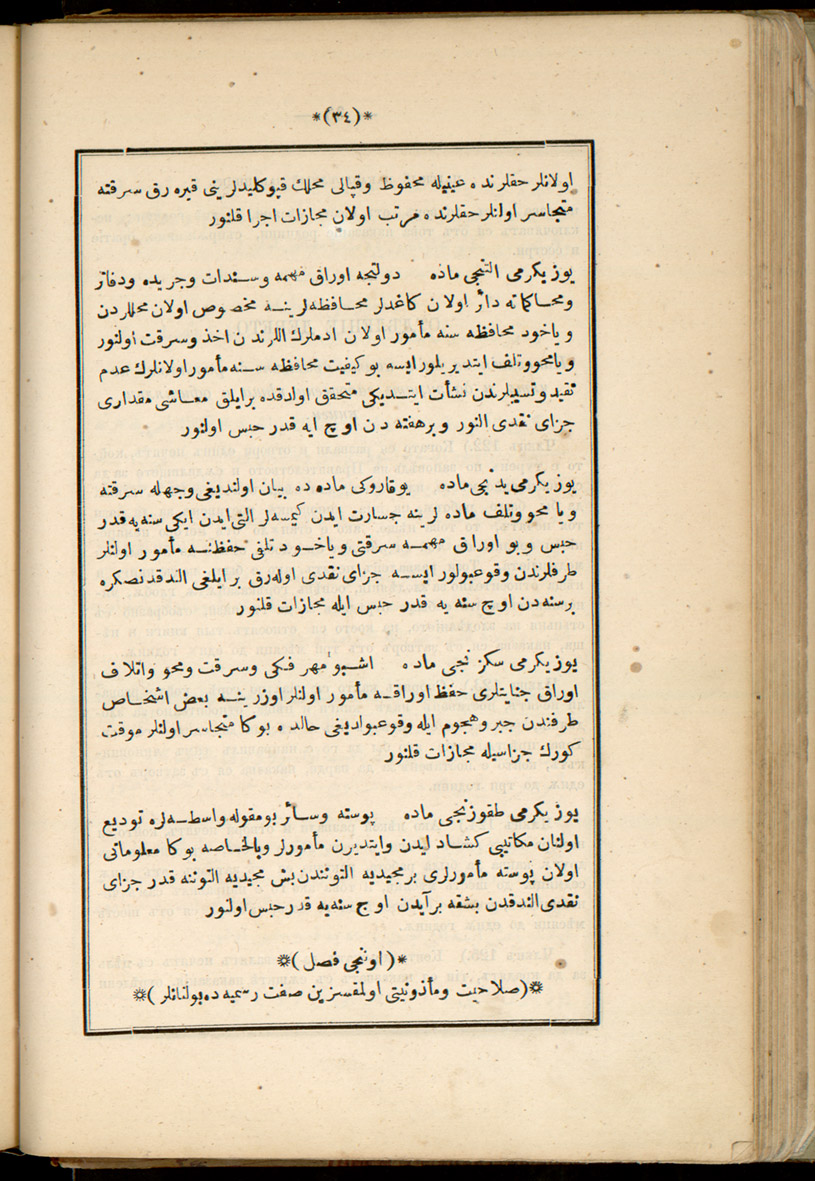 *(٣٤)*
اولانلر حقلرنده عینیله محفوظ وقپالی محللك قپوکلیدلرینی قیره رق سرقته
متجاسر اولنلر حقلرنده مرتب اولان مجازات اجرا قلنور
یوز یکرمی التنجی ماده دولتجه اوراق مهمه وسندات وجریده ودفاتر
ومحاکماته دائر اولان کاغدلر محافظه لرینه مخصوص اولان محللردن
ویاخود محافظه سنه مأمور اولان ادملرك اللرندن اخذ وسرقت اولنور
ویا محو وتلف ایتدیریلور ایسه بو کیفیت محافظه سنه مأمور اولانلرك عدم
تقید وتسیبلرندن نشأت ایتدیکی متحقق اولدقده برایلق معاشی مقداری
جزای نقدی النور وبرهفته دن اوچ ایه قدر حبس اولنور
یوز یکرمی یدنجی ماده یوقاروکی ماده ده بیان اولندیغی وجهله سرقته
ویا محو وتلف ماده لرینه جسارت ایدن کیمسه لر التی ایدن ایکی سنه یه قدر
حبس وبو اوراق مهمه سرقتی ویاخود تلفی حفظنه مأمور اولنلر
طرفلرندن وقوعبولور ایسه جزای نقدی اوله رق برایلغی الندقدنصکره
برسنه دن اوچ سنه یه قدر حبس ایله مجازات قلنور
یوز یکرمی سکزنجی ماده اشبو مهر فکی وسرقت ومحو واتلاف
اوراق جنایتلری حفظ اوراقه مأمور اولنلر اوزرینه بعض اشخاص
طرفندن جبر وهجوم ایله وقوعبولدیغی حالده بوکا متجاسر اولنلر موقت
کورك جزاسیله مجازات قلنور
یوز یکرمی طقوزنجی ماده پوسته وسائر بومقوله واسطه لره تودیع
اولنان مکاتیبی کشاد ایدن وایتدیرن مأمورلر وبالخاصه بوکا معلوماتی
اولان پوسته مأمورلری برمجیدیه التونندن بش مجیدیه التوننه قدر جزای
نقدی الندقدن بشقه برآیدن اوچ سنه یه قدر حبس اولنور
*(اوننجی فصل)*
*(صلاحیت ومأذونیتی اولمقسزین صفت رسمیه ده بولنانلر)*